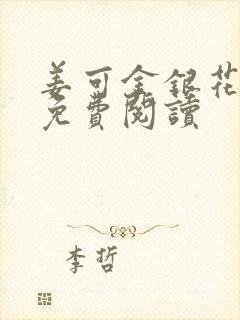 姜可金銀花
免費閱讀
李哲